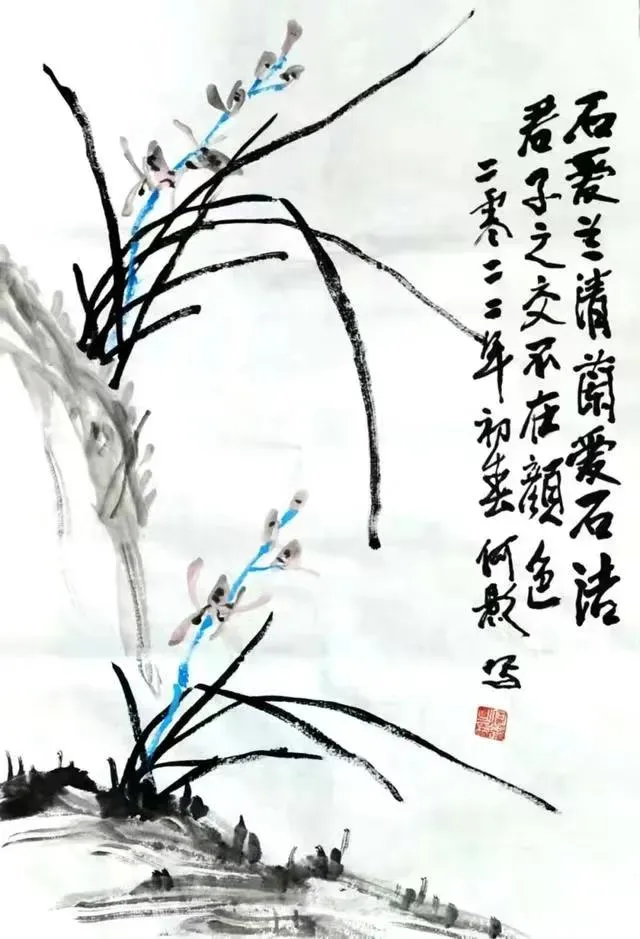 石爱兰清蘭爱石洁
君子之交不在顔色
二零二二年初春何影写